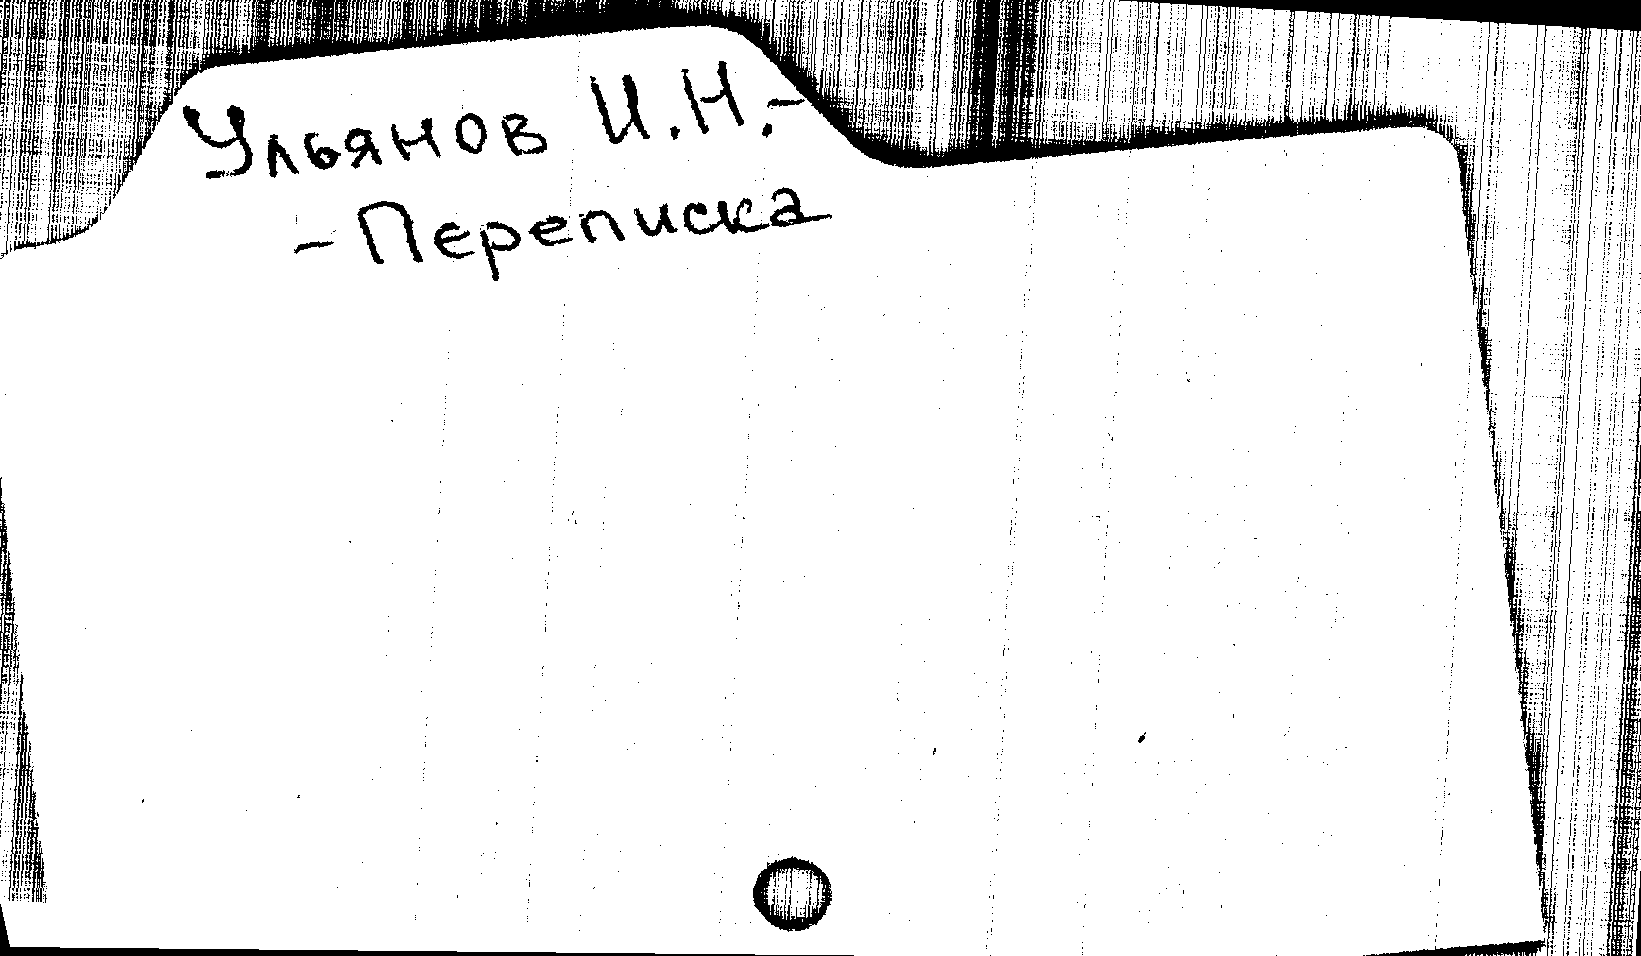 Ульянов И.Н.-
- Переписка